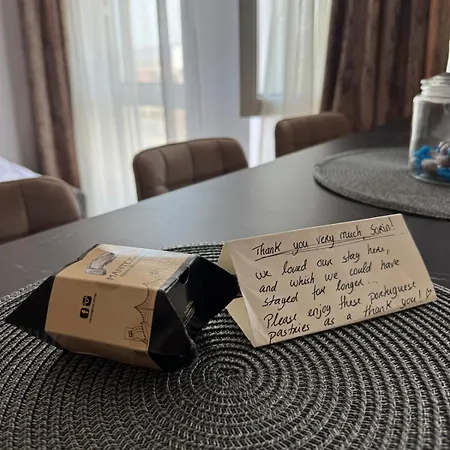 Thank you very much, Sorin!
We loved our stay here,
and which we could have
stayed for longer...
Please enjoy these portuguese
pastries as a thank you!